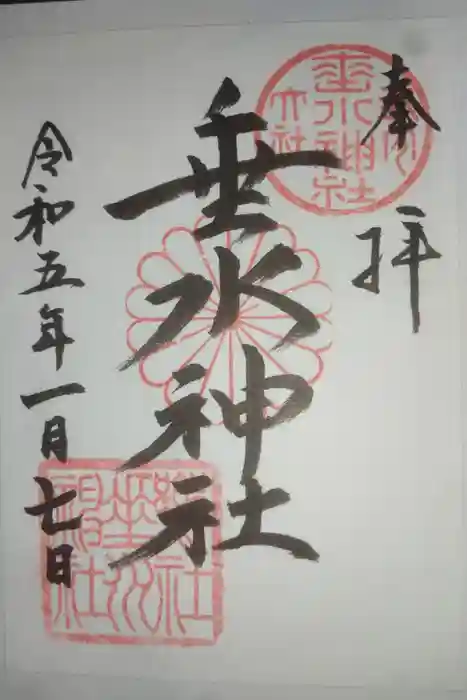 奉拝
垂水神社
令和五年一月七日
垂水神社